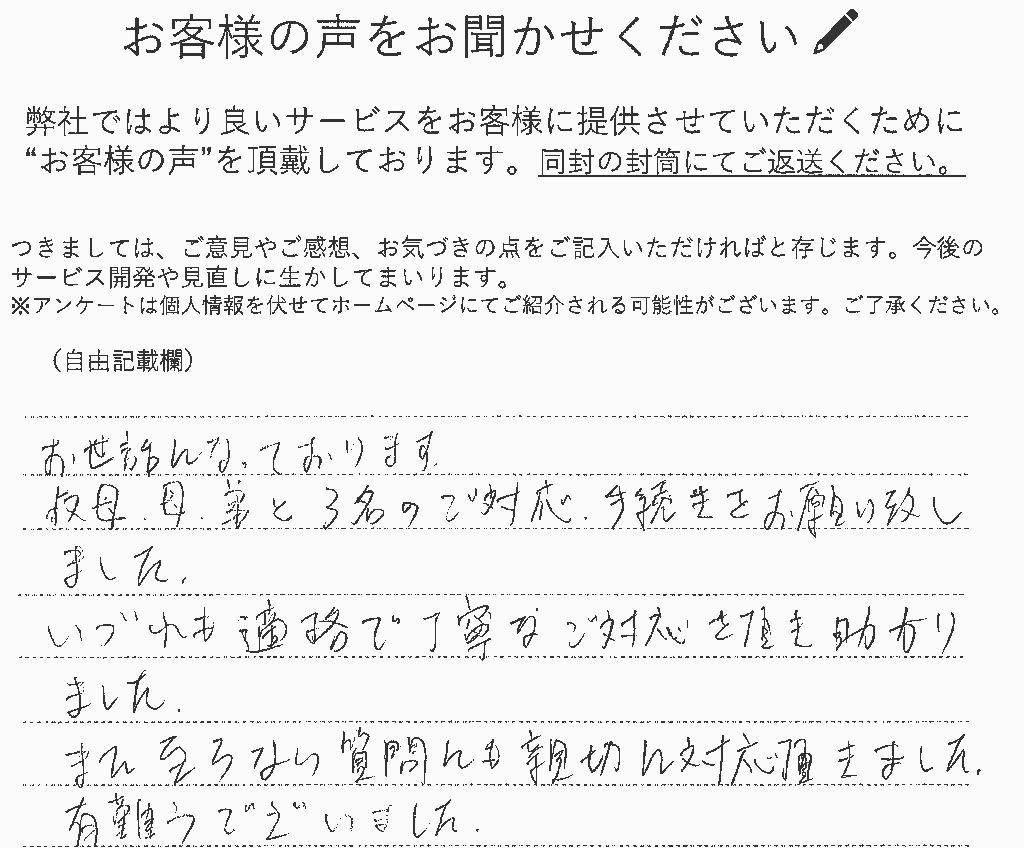 お客様の声をお聞かせください
弊社ではより良いサービスをお客様に提供させていただくために
“お客様の声”を頂戴しております。同封の封筒にてご返送ください。
つきましては、ご意見やご感想、お気づきの点をご記入いただければと存じます。今後の
サービス開発や見直しに生かしてまいります。
※アンケートは個人情報を伏せてホームページにてご紹介される可能性がございます。ご了承ください。
（自由記載欄）
お世話になっております
叔母.母.弟と3名のご対応.手続きをお願い致し
ました.
いづれも適格で丁寧なご対応を頂き助かり
ました.
また至らない質問にも親切に対応頂きました.
有難うございました.